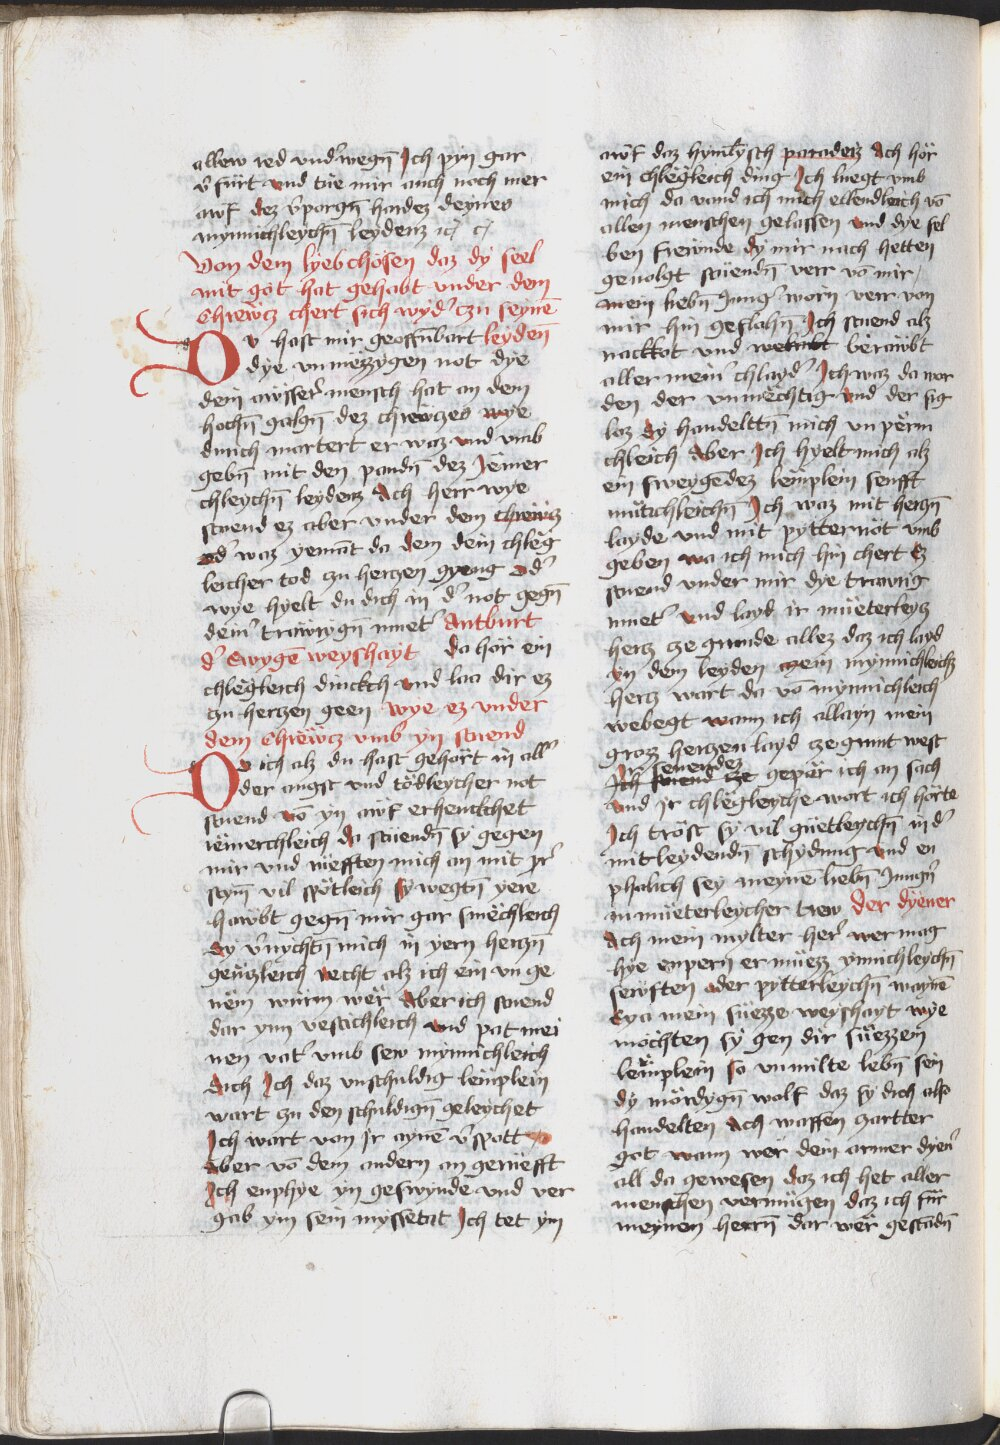 allew red vnd' wegñ Ich pyn gar
v̄fürt vnd tüe mir auch noch mer
awf dez v̄porgñ hordez deynes
mynnichleychñ leydenz
Von dem lyebchösen daz dy seel
mit got hat gehabt vnder dem
Chrewcz chert sich wyd' czu seynē
Dv hast mir geoffnbart leydēn
dye vnmëzzygen not dye
dein awsser' mensch hat an dem
hochñ galgñ dez chrewczes wye
durich martert er waz vnd vmb
gebñ mit den pandñ dez Jëmer
chleychñ leydenz Ach herr wye
stuend ez aber vnder dem chrewcz
od' waz yemāt da dem dein chleg
leicher tod czu herczen gyeng Od'
wye hyelt du dich in d' not gegñ
dein' trawrygñ muet' Antburt
d' Ewygē weyshayt da hör ein
chlegleich dinckch vnd laa dir ez
czu herczen geen wye ez vnder
dem Chrewcz vmb yn stuend
Do ich alz du hast gehört in all'
der angst vnd tödleycher not
stuend vō yn awf erhenckchet
iëmerchleich da stuendñ sy gegen
mir vnd rüefften mich an mit jr'
stym vil spötleich sy wegtñ yere
hawbt gegñ mir gar smëchleich
dy v̄nychtñ mich in yern herczñ
genczleich recht alz ich ein vn ge
nëm würm wër Aber ich stuend
dar ynn vestichleich vnd pat mei
nen vat' vmb sew mynnichleich
Sich Ich daz vnschuldig lemplein
wart czu den schuldigñ geleychet
Ich wart von jr aynē v̄spott
Aber vō dem andern an gerüefft
Ich enphye yn geswynde vnd ver
gab ym sein myssetat Ich tet ym
awf daz hymlysch paradeiz Ach hör
ein chlegleich ding Ich luegt vmb
mich da vand ich mich ellendleich vō
allen menschen gelassen vnd dye sel
ben frewnde dy mir nach hetten
geuolgt stuendñ verr vō mir
mein liebñ Jung' worn verr von
mir hin geflohñ Ich stuend alz
nackkot vnd berawbt
aller mein' chlayd' Ich waz da wor
den der vnmëchtig vnd der sig
loz dy handelttñ mich vnpërm
chleich Aber Ich hyelt mich alz
ein sweygendez lemplein senfft
mütichleichñ Ich waz mit herczñ
layde vnd mit pytternöt vmb
geben wa ich mich hin chert Ez
stuend vnder mir dye trawrig
muet' vnd layd ir müeterleych
hercz ze grunde allez daz ich layd
yn dem leyden mein mynnichleich
hercz wart da vō mynnichleich
webegt wann ich allayn mein
grozz herczen layd cze grunt west
Ir senendez gepär ich an sach
vnd jr chlegleyche wort ich hörte
Ich tröst sy vil güetleychñ in d'
mitleydendñ schydung vnd en
phalich sey meyne liebñ Jungñ
in müeterleycher trew der dyener
Ach mein mylter her' wer mag
hye enpern er müezz ynnichleychñ
sewften oder pytterleychñ waynē
Eya mein süezze weyshayt wye
möchten sy gen dir süezzem
lemplein so vnmilte lebñ sein
dy mördygñ wolf daz sy dich also
handelten Ach waffen zartter
got wann wer dein armer dyen'
all da gewesen daz ich het aller
menschen vermügen daz ich für
meynen herrñ dar wer gestādñ